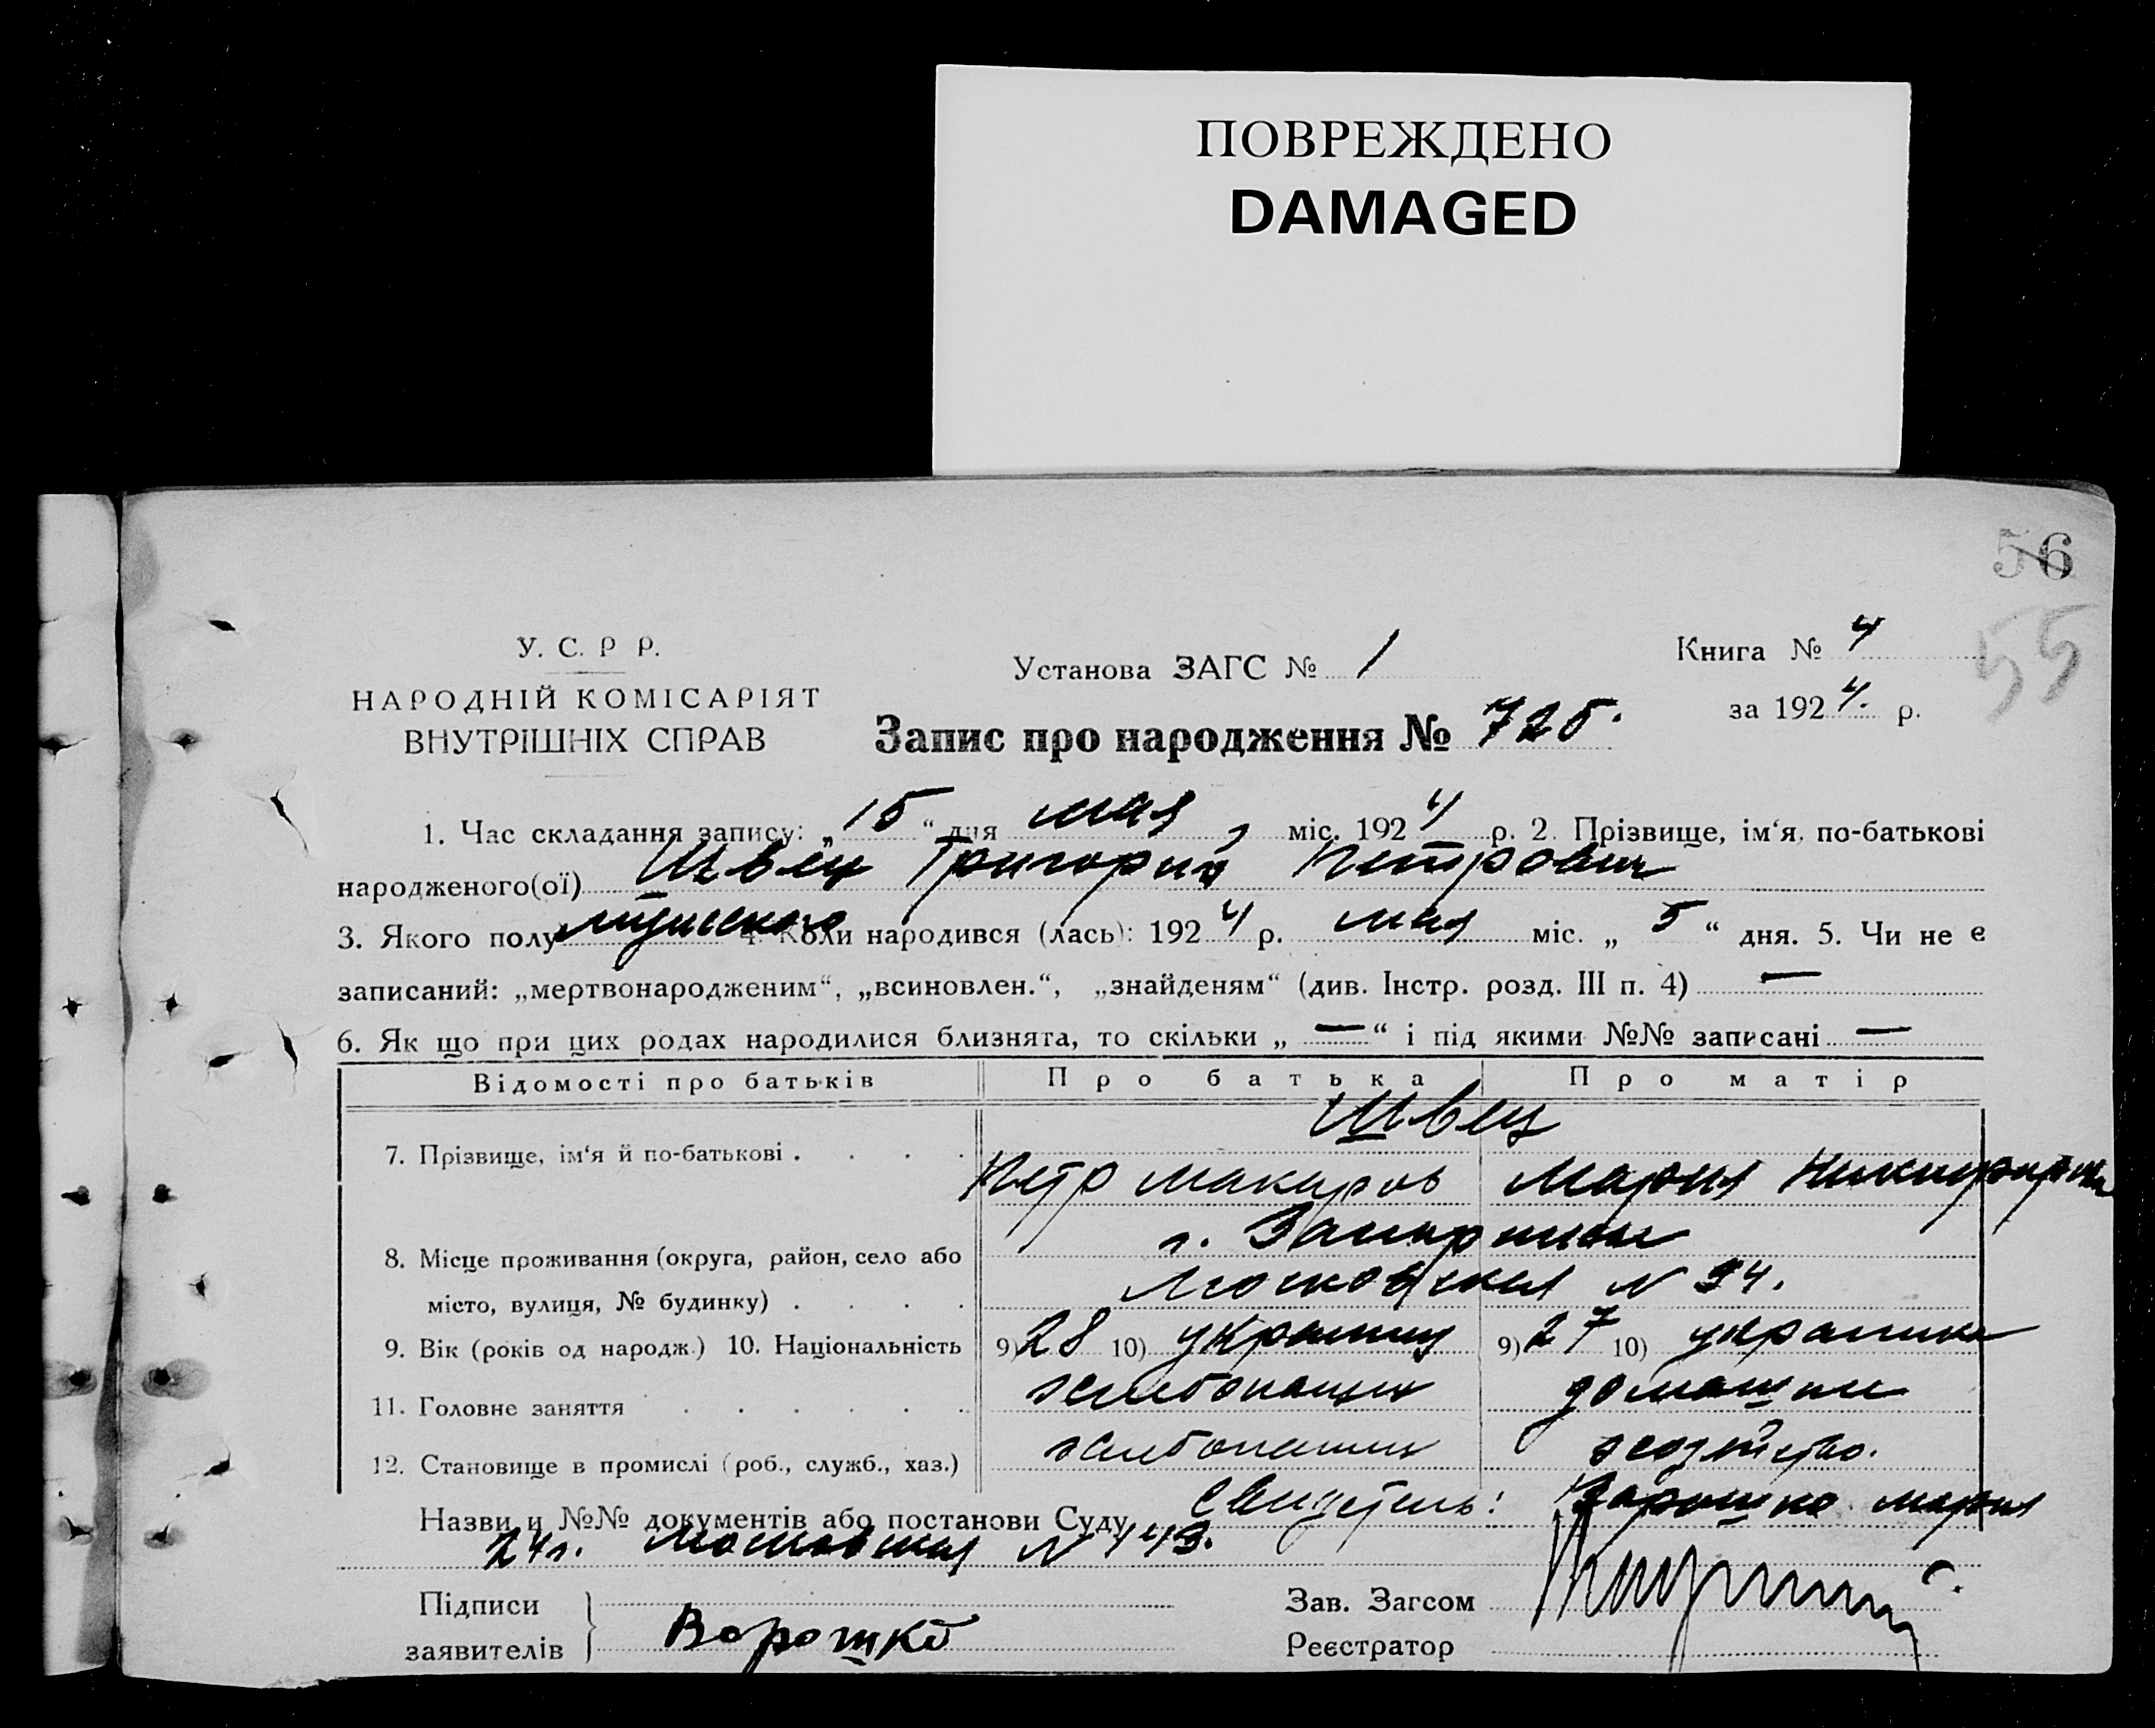 ПОВРЕЖДЕНО
DAMAGED
56
55
У. С. Р Р.
НАРОДНІЙ КОМІСАРІЯТ
ВНУТРІШНІХ СПРАВ
Установа ЗАГС № 1
Книга № 4
за 1924. р.
Запис про народження № 725.
1. Час складання запису: „15“ дня мая міс. 1924 р. 2. Прізвище, ім‘я, по-батькові
народженого(ої) Швец Григорий Петрович
3. Якого полу мужского 4. Коли народився (лась): 1924 р. мая міс. „5“ дня. 5. Чи не є
записаний: „мертвонародженим“, „всиновлен.“, „знайденям“ (див. Інстр. розд. III п. 4) —
6. Як що при цих родах народилися близнята, то скільки „—“ і під якими №№ записані —
Відомості про батьків Про батька Про матір
Швец
7. Прізвище, ім‘я й по-батькові . . . .
Петр Макаров Мария
г. Запорожье
8. Місце проживання (округа, район, село або
Московская N 94.
місто, вулиця, № будинку) . . . .
9. Вік (років од народж.) 10. Національність 9) 28 10) украинец 9) 27 10) украинка
11. Головне заняття . . . . . . хлебопашец домашнее
12. Становище в промислі (роб., служб., хаз.) хлебопашец хозяйство.
Назви и №№ документів або постанови Суду Свидетель: Ворошко Мария
24 г. Московская N 143.
Підписи
заявителів
Ворошко
Зав. Загсом
Реєстратор